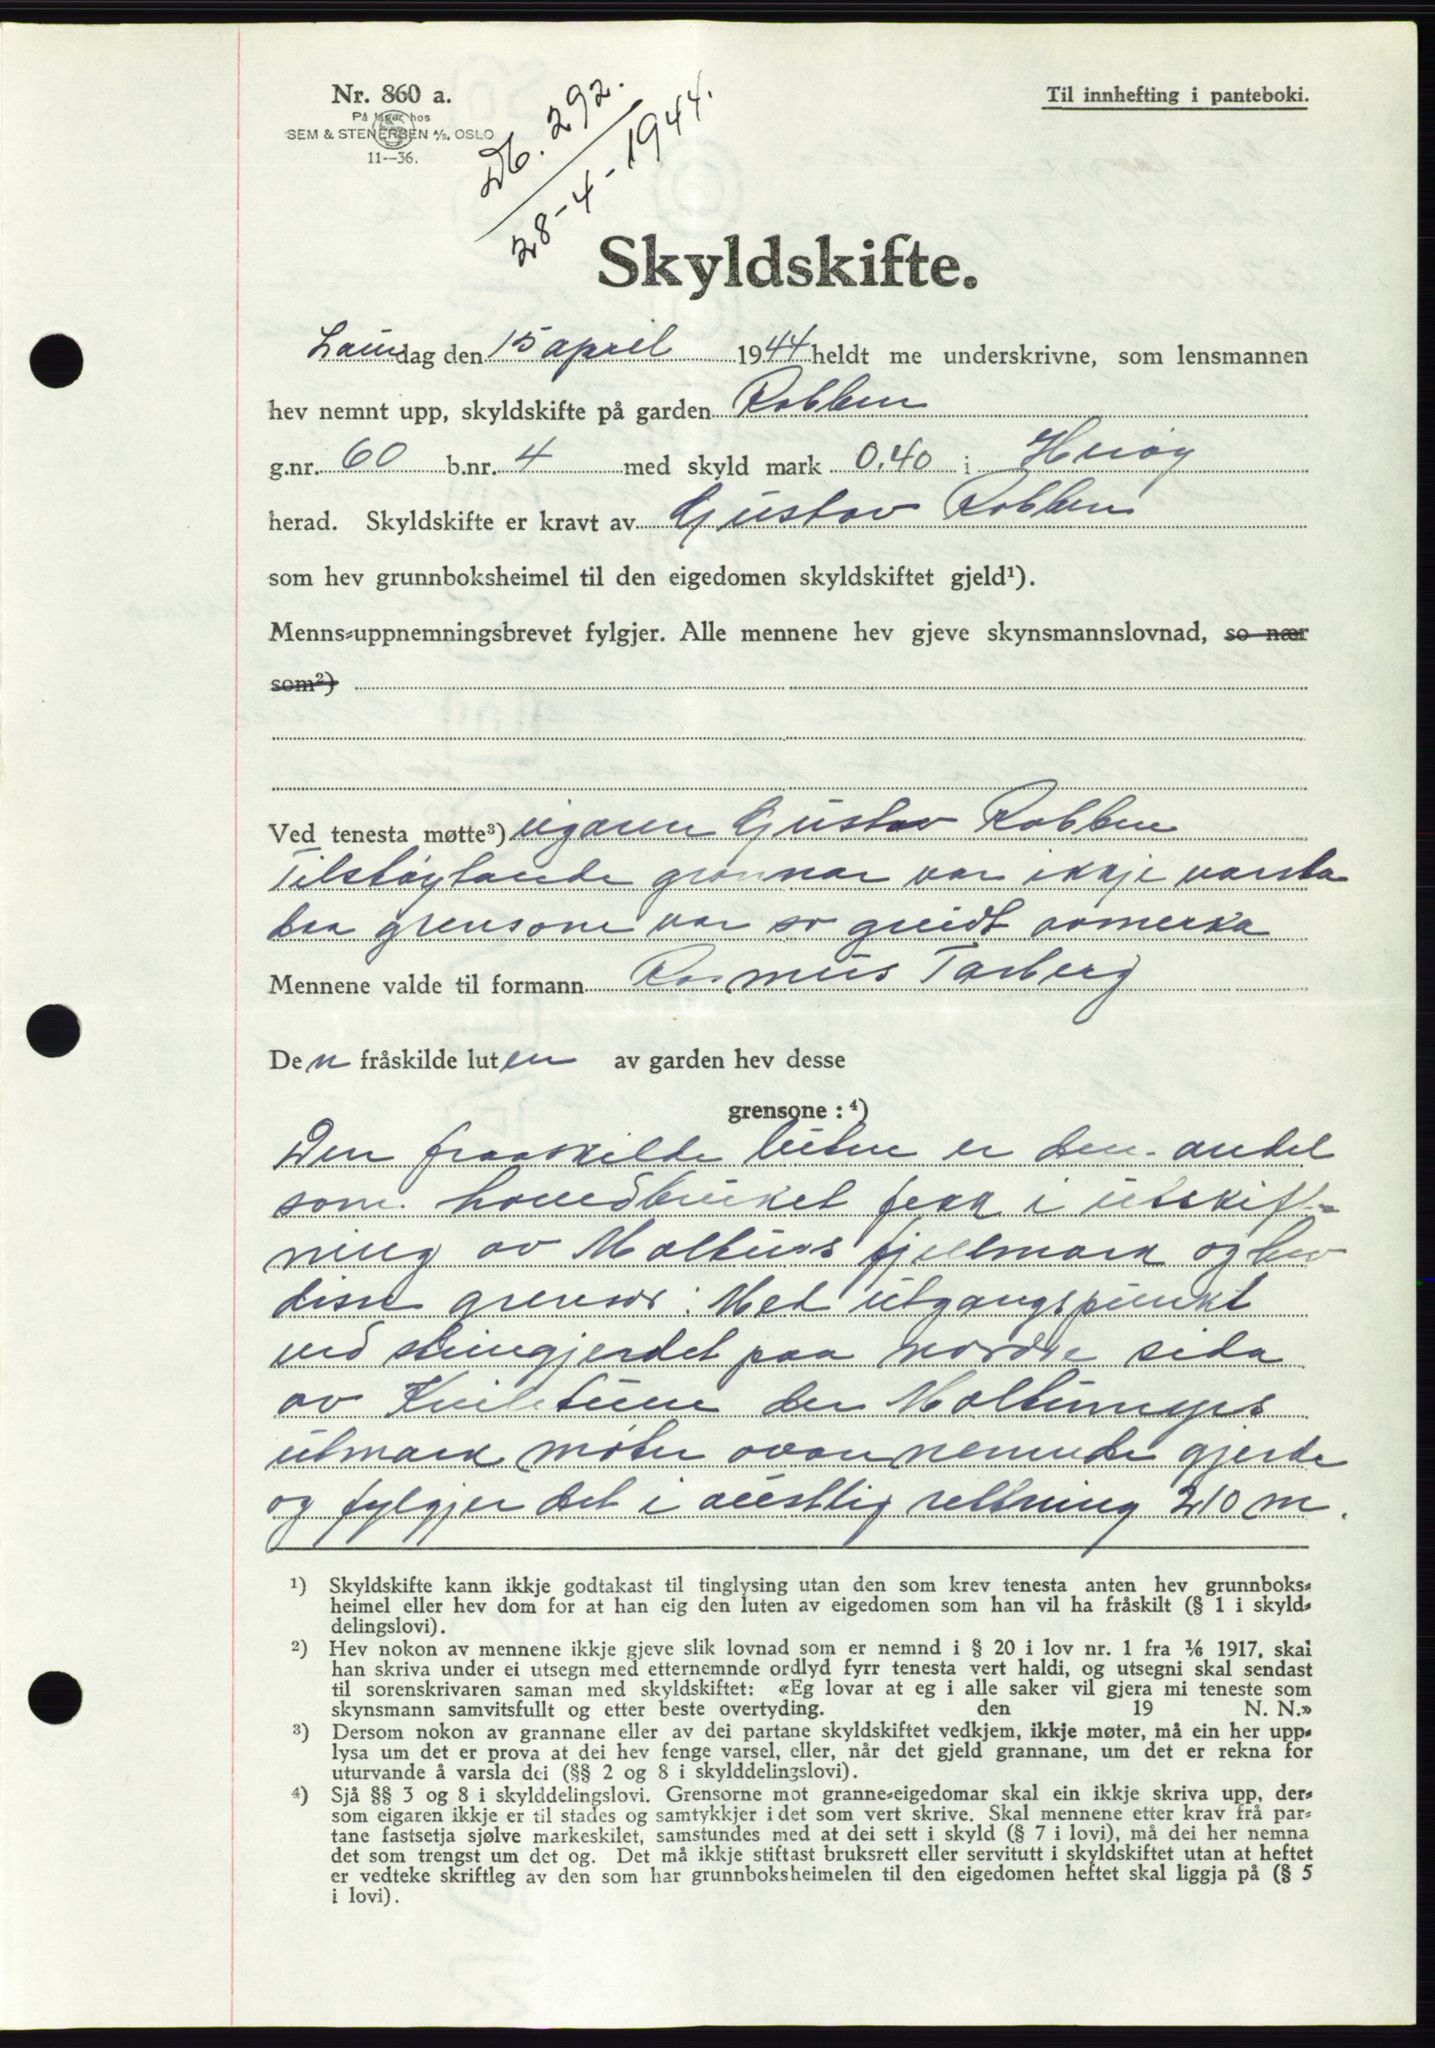 Nr. 860 a.
På lager hos
SEM & STENERSEN A/S, OSLO
11—36.
Db. 292.
28-4-1944.
Til innhefting i panteboki.
Skyldskifte.
Laurdag den 15 april 1944 heldt me underskrivne, som lensmannen
hev nemnt upp, skyldskifte på garden Robben
g.nr. 60 b.nr. 4 med skyld mark 0.40 i Herøy
herad. Skyldskifte er kravt av Gustav Robben
som hev grunnboksheimel til den eigedomen skyldskiftet gjeld¹).
Menns-uppnemningsbrevet fylgjer. Alle mennene hev gjeve skynsmannslovnad, so nær
som²)
Ved tenesta møtte³) eigaren Gustav Robben
Tilstøytande grannar var ikkje varsla
daa grensone var so greidt avmerka
Mennene valde til formann Rasmus Tarberg
Den fråskilde luten av garden hev desse
grensone : ⁴)
Den fraaskilde luten er den andel
som hovedbruket fekk i utskift-
ning av Moltus fjellmark og hev
disse grensor: Med utgangspunkt
ved steingjerdet paa nordre sida
av der Moltumyrs
utmark møter ovannemnde gjerde
og fylgjer det i austlig rettning 210 m.
¹) Skyldskifte kann ikkje godtakast til tinglysing utan den som krev tenesta anten hev grunnboks-
heimel eller hev dom for at han eig den luten av eigedomen som han vil ha fråskilt (§ 1 i skyld-
delingslovi).
²) Hev nokon av mennene ikkje gjeve slik lovnad som er nemnd i § 20 i lov nr. 1 fra 1/6 1917, skal
han skriva under ei utsegn med etternemnde ordlyd fyrr tenesta vert haldi, og utsegni skal sendast
til sorenskrivaren saman med skyldskiftet: «Eg lovar at eg i alle saker vil gjera mi teneste som
skynsmann samvitsfullt og etter beste overtyding. den 19 N. N.»
³) Dersom nokon av grannane eller av dei partane skyldskiftet vedkjem, ikkje møter, må ein her upp-
lysa um det er prova at dei hev fenge varsel, eller, når det gjeld grannane, um det er rekna for
uturvande å varsla dei (§§ 2 og 8 i skylddelingslovi).
⁴) Sjå §§ 3 og 8 i skylddelingslovi. Grensorne mot granne-eigedomar skal ein ikkje skriva upp, der-
som eigaren ikkje er til stades og samtykkjer i det som vert skrive. Skal mennene etter krav frå par-
tane fastsetja sjølve markeskilet, samstundes med at dei sett i skyld (§ 7 i lovi), må dei her nemna
det som trengst um det og. Det må ikkje stiftast bruksrett eller servitutt i skyldskiftet utan at heftet
er vedteke skriftleg av den som har grunnboksheimelen til den eigedomen heftet skal liggja på (§ 5
i lovi).